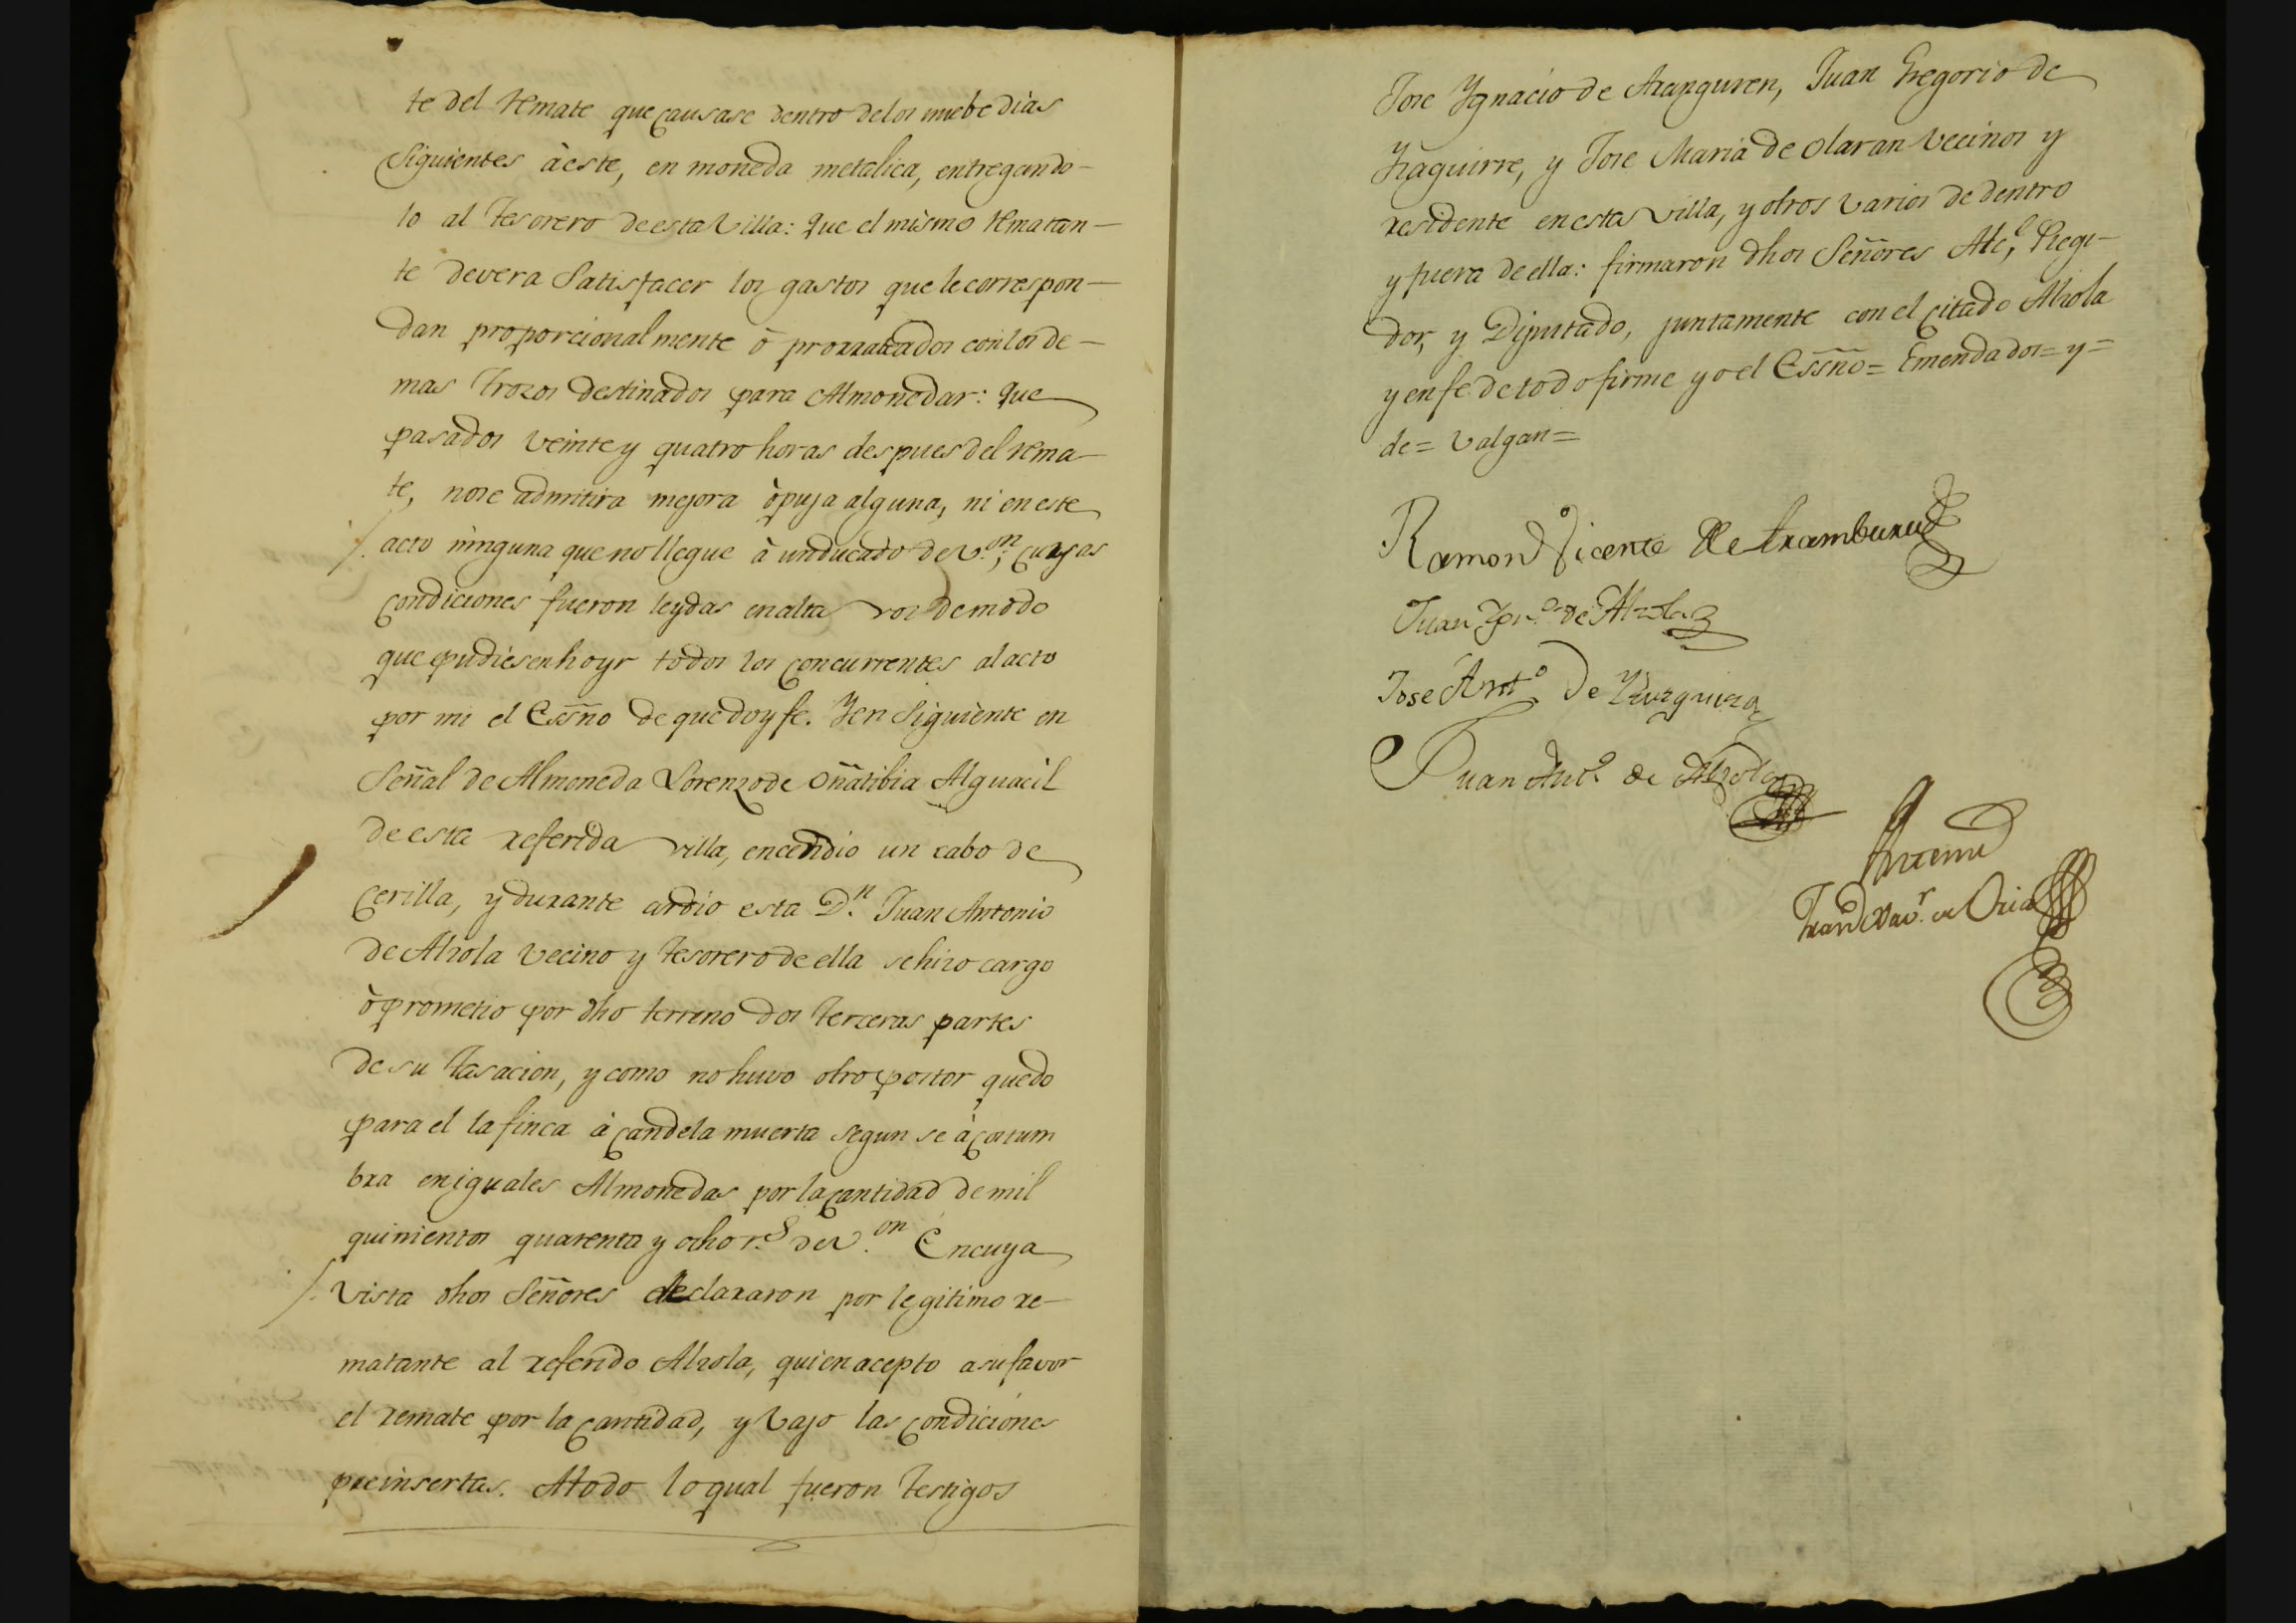 te del remate que causase dentro de los nuebe dias
siguientes à este, en moneda metalica, entregando-
lo al Tesorero de esta Villa: que el mismo rematan-
te devera satisfacer los gastos que le correspon-
dan proporcionalmente ò prorrateados con los de-
mas trozos destinados para Almonedar: Que
pasados veinte y quatro horas despues del rema-
te, no se admitira mejora ò puja alguna, ni en este
acto ninguna que no llegue à un ducado de v.on; cuyas
condiciones fueron leydas en alta voz de modo
que pudiesen hoyr todos los concurrentes al acto
por mi el Essño de que doy fe. Y en siguiente en
Señal de Almoneda Lorenzo de Oñatibia Alguacil
de esta referida villa, encendio un cabo de
Cerilla, y durante ardio esta D.n Juan Antonio
de Alzola vecino y tesorero de ella se hizo cargo
ò prometio por dho terreno dos terceras partes
de su tasacion, y como no huvo otro postor quedo
para el la finca à candela muerta segun se àcostum
bra en iguales Almonedas por la cantidad de mil
quinientos quarenta y ocho r.s de v.on En cuya
vista dhos Señores declararon por legitimo re-
matante al referido Alzola, quien acepto a su favor
el remate por la cantidad, y vajo las condiciones
preinsertas. A todo lo qual fueron testigos
Jose Ygnacio de Aranguren, Juan Gregorio de
Yzaguirre, y Jose Maria de Olaran vecinos y
residente en esta villa, y otros varios de dentro
y fuera de ella: firmaron dhos Señores Alc.l, Regi-
dor, y Diputado, juntamente con el citado Alzola
y en fe de todo firme yo el Essño= Emendados= y=
de= Valgan=
Ramon Vicente de Aramburu
Juan Ygn.o de Alzola
Jose Ant.o de
Juan Ant.o de Alzola
Antemi
Fran.co Xav.r de Oria